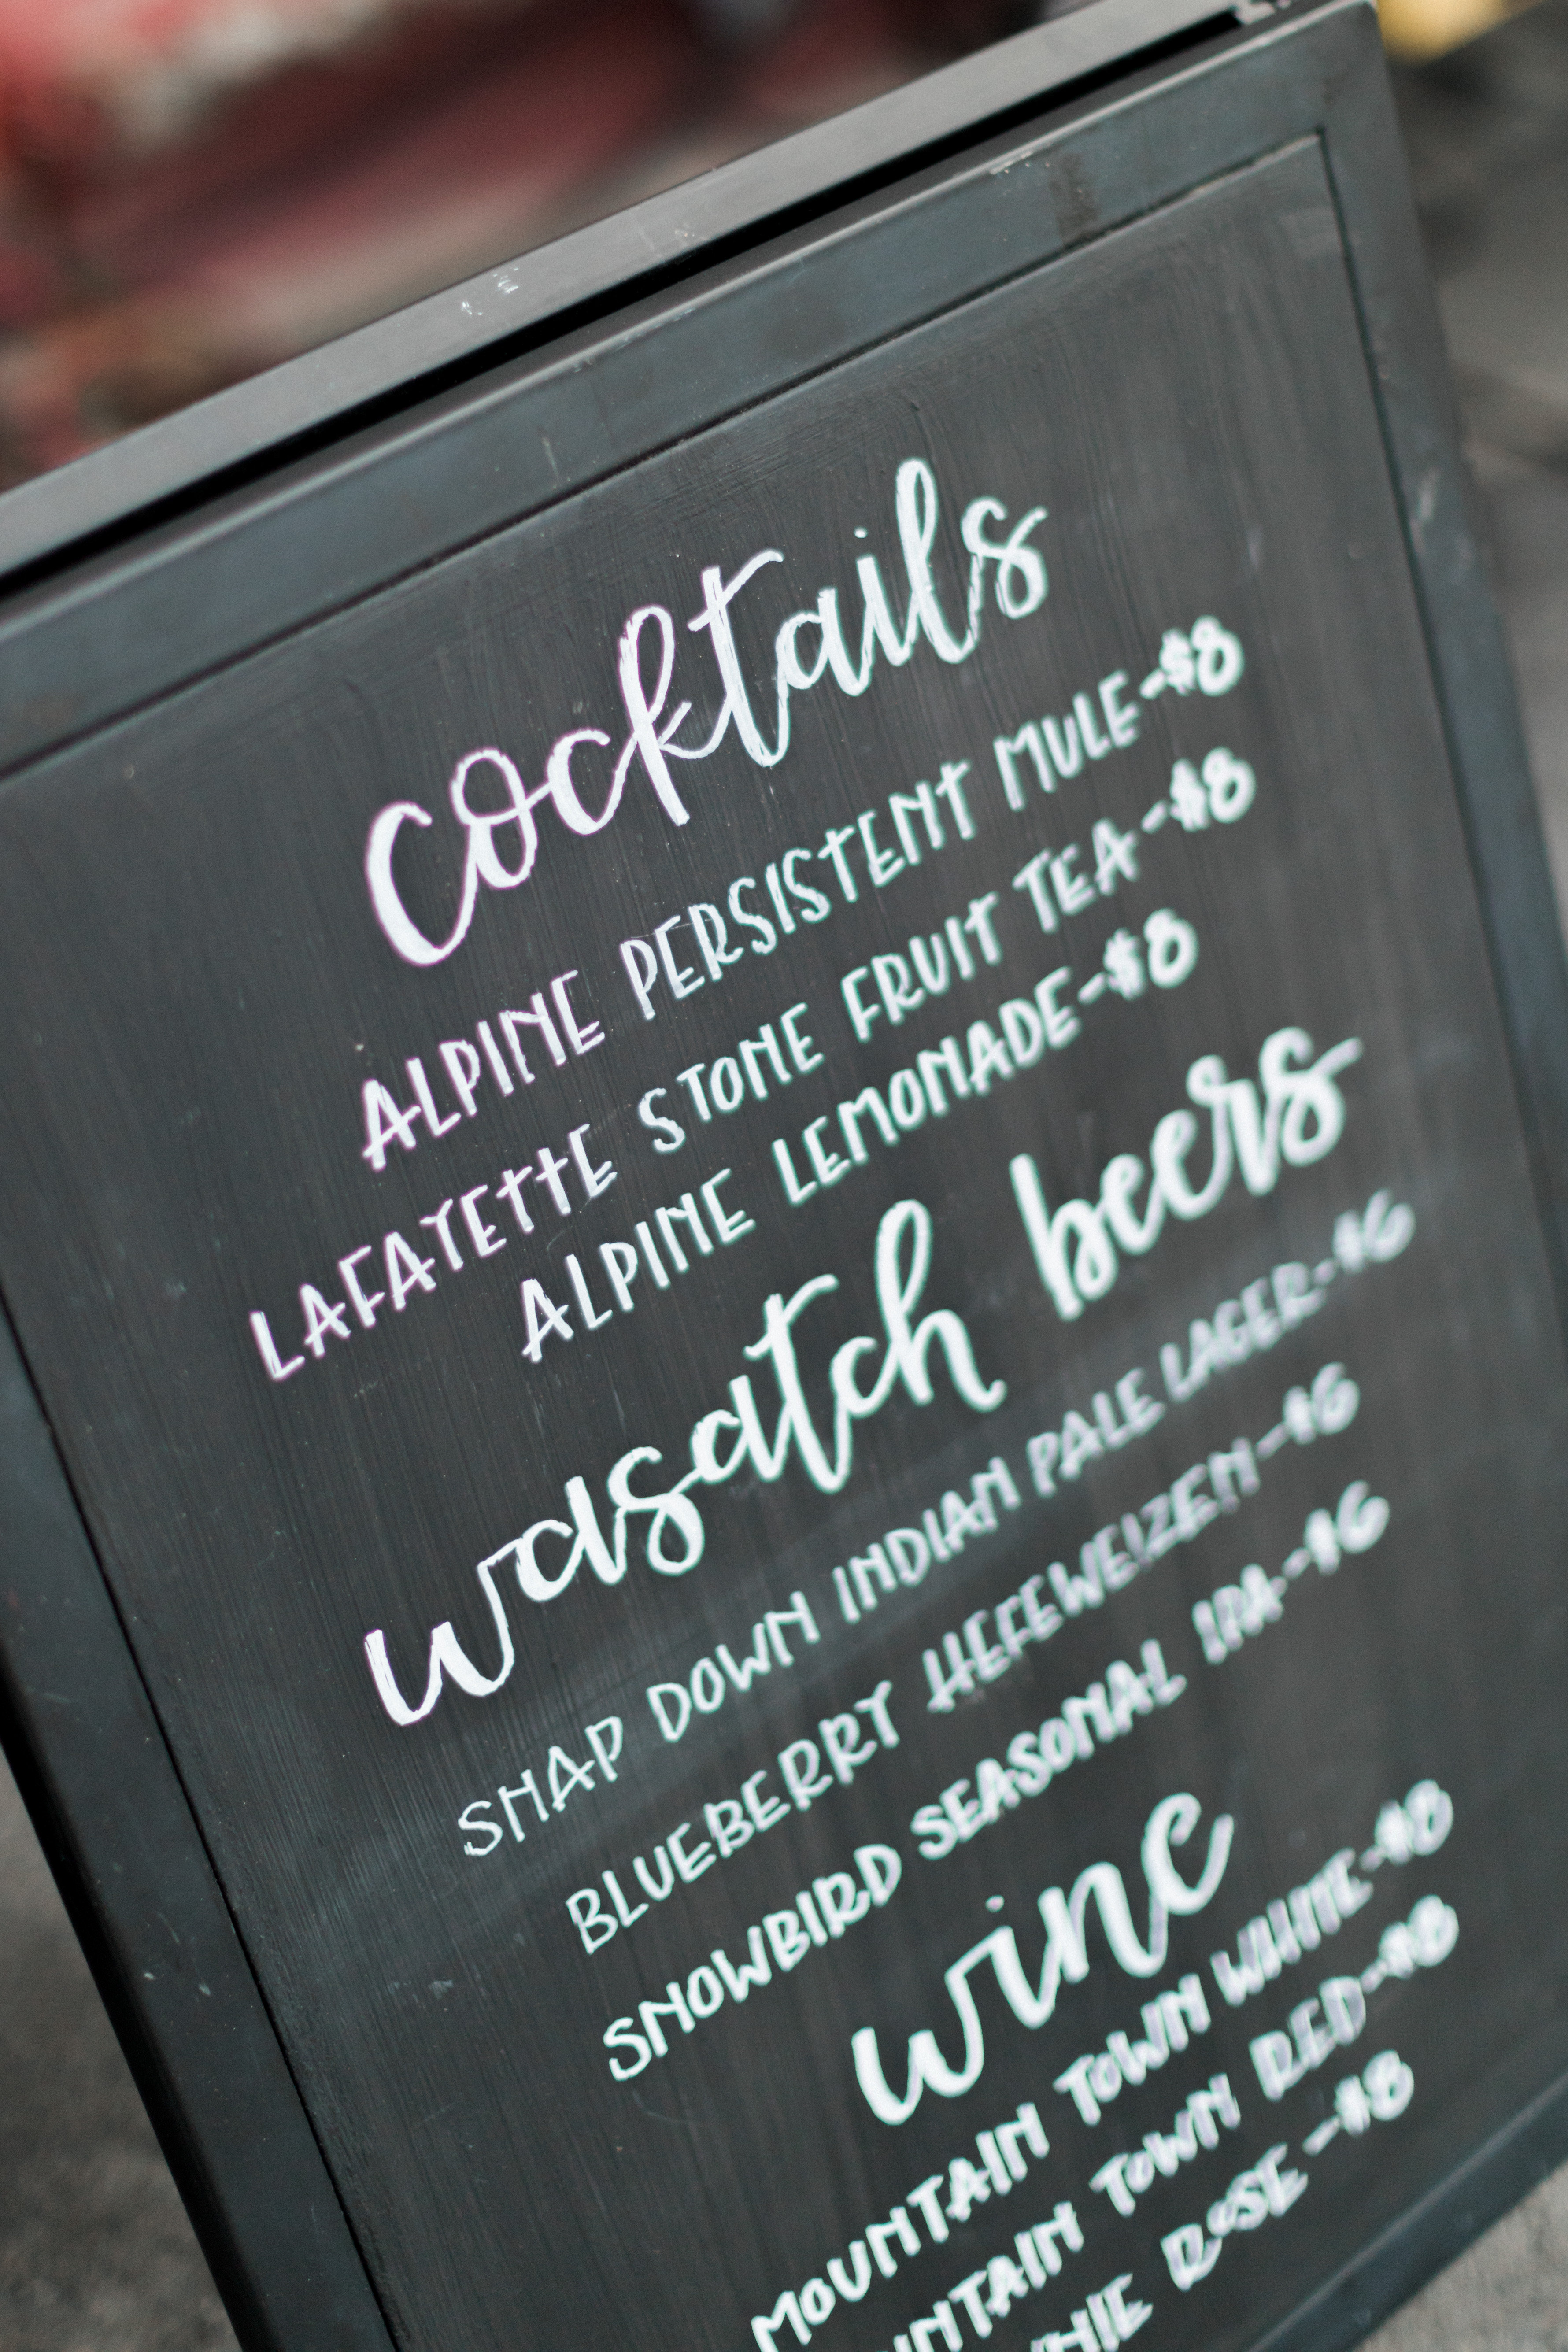 cocktails
ALPINE PERSISTENT MULE-$8
LAFAYETTE STONE FRUIT TEA-$8
ALPINE LEMONADE-$8
wasatch beers
SNAP DOWN INDIAN PALE LAGER-$6
BLUEBERRY HEFEWEIZEN-$6
SNOWBIRD SEASONAL IPA-$6
wine
MOUNTAIN TOWN WHITE-$8
TOWN RED-$8
ROSE-$8